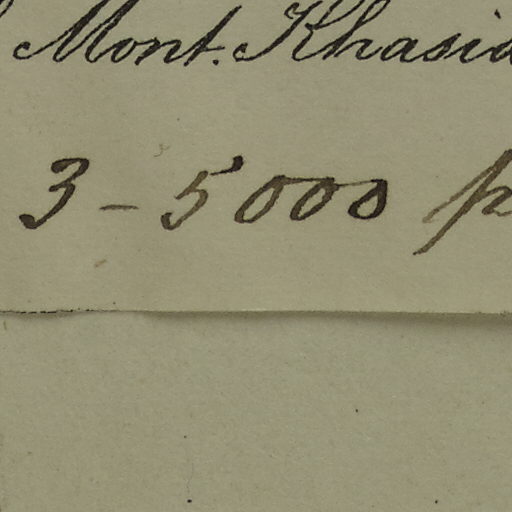 Mont. Khasia
3-5000 p